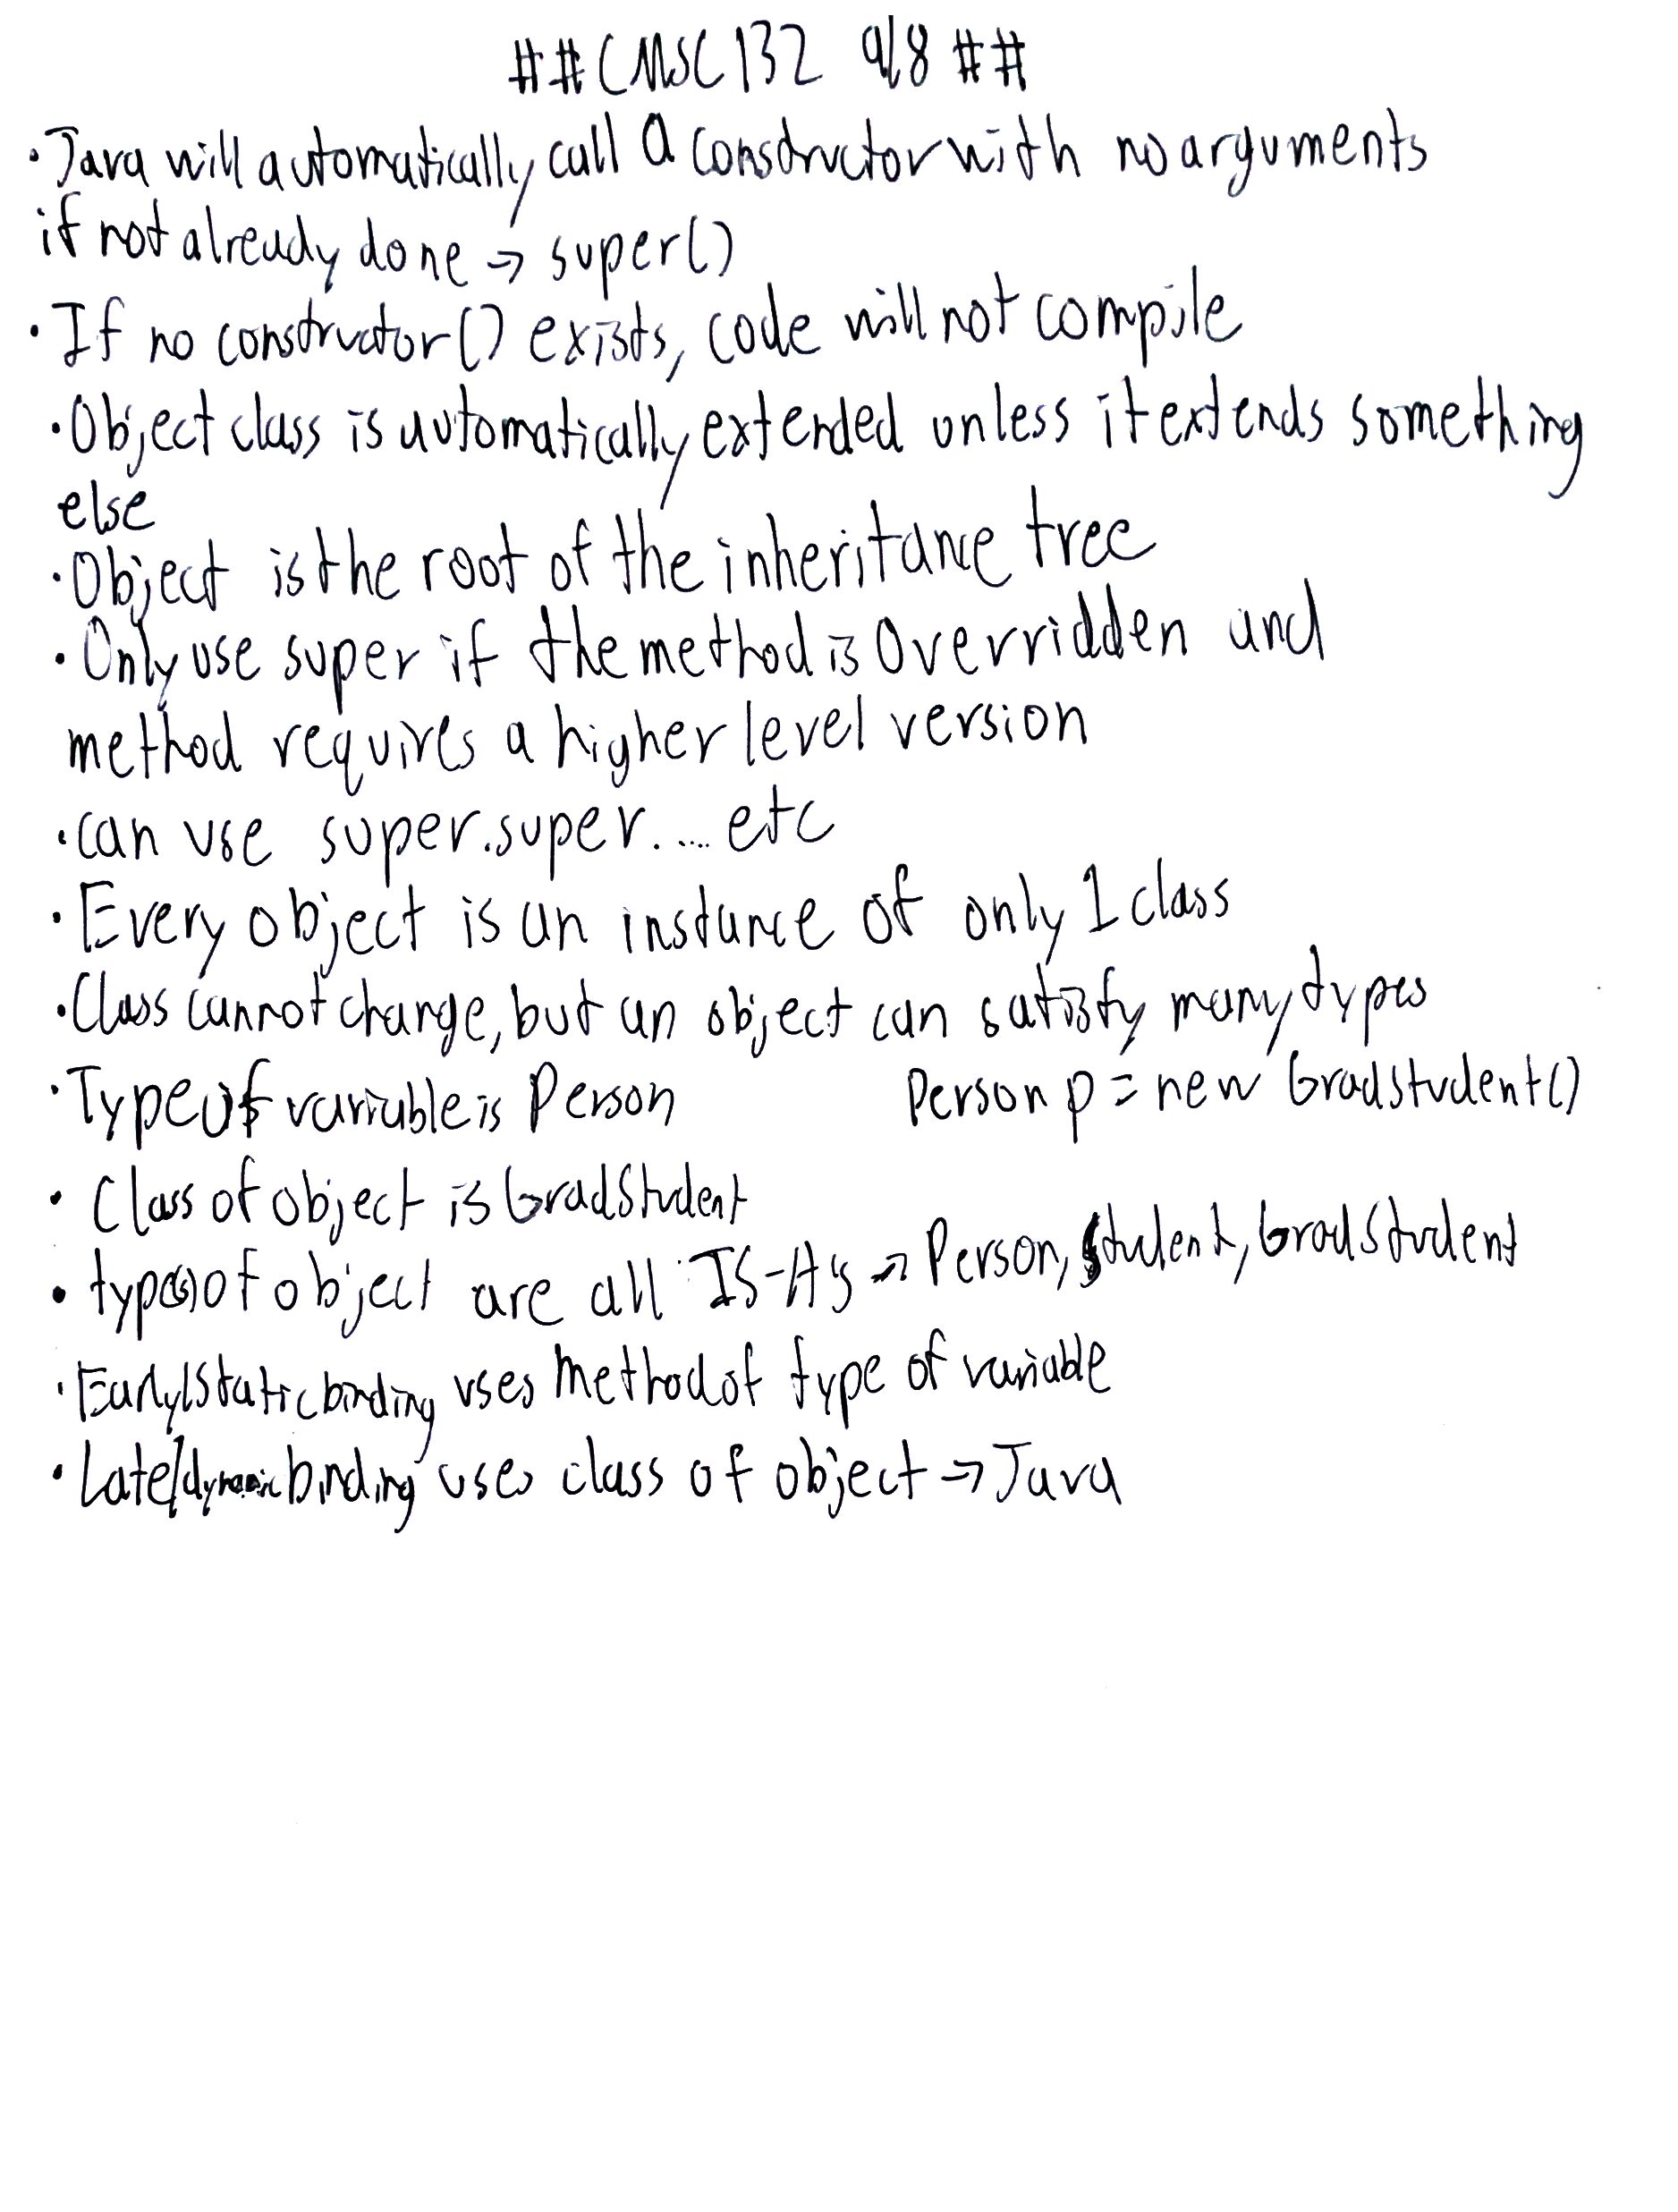 ##CMSC132 9/8##
• Java will automatically call a constructor with no arguments
if not already done → super()
• If no constructor() exists, code will not compile
• Object class is automatically extended unless it extends something
else
• Object is the root of the inheritance tree
• Only use super if the method is overridden and
method requires a higher level version
• can use super.super.... etc
• Every object is an instance of only 1 class
• Class cannot change, but an object can satisfy many types
• Type of variable is Person Person p = new Gradstudent()
• Class of object is GradStudent
• type(s) of object are all IS-A's → Person, Student, GradStudent
• Early/Static binding uses method of type of variable
• Late/dynamic binding uses class of object → Java